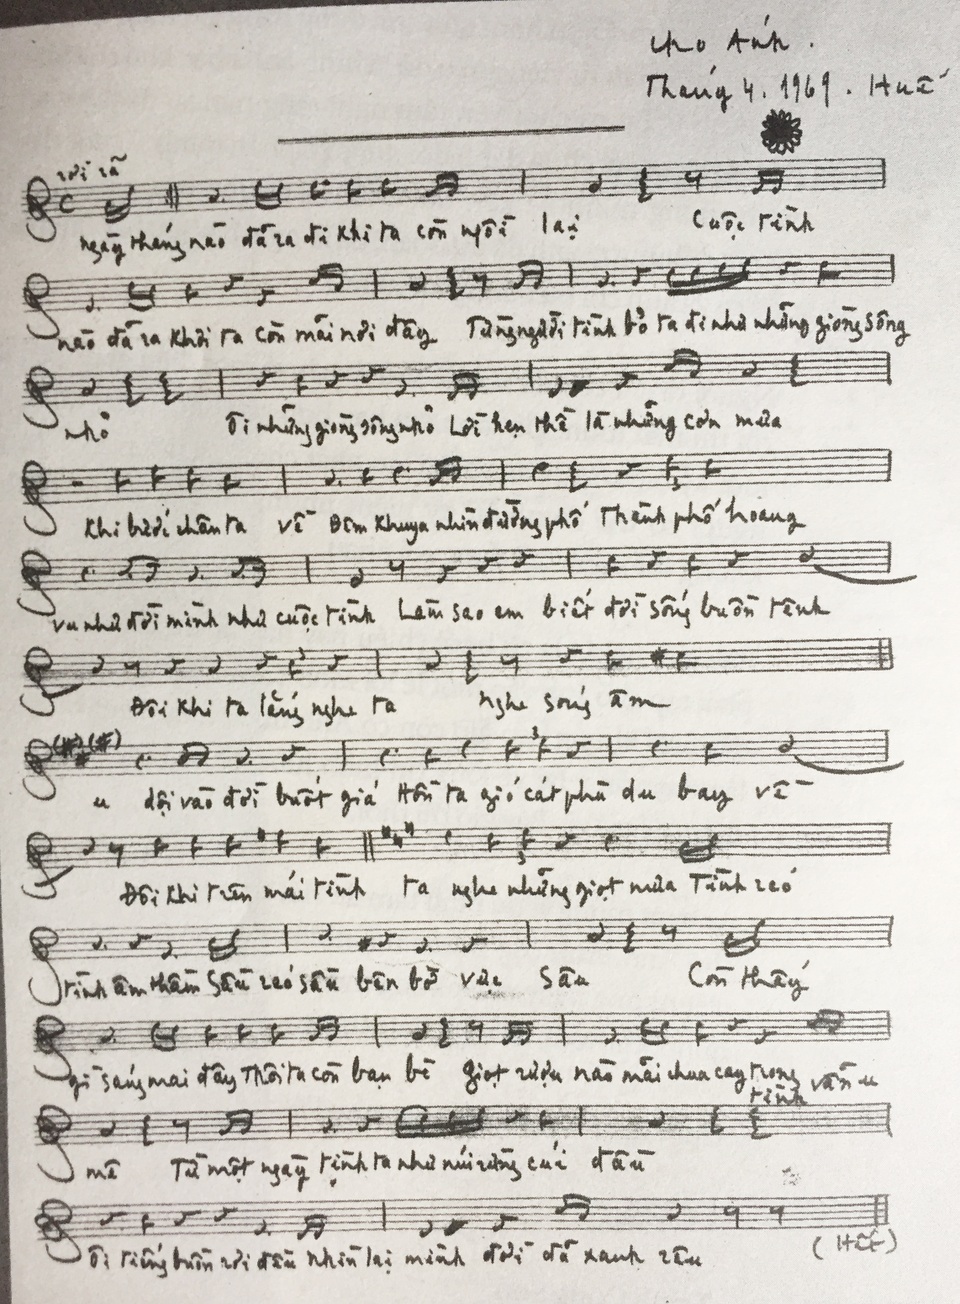 cho Ánh.
Tháng 4. 1969. Huế
rời rã
ngày tháng nào đã ra đi khi ta còn ngồi lại Cuộc tình
nào đã ra khơi ta còn mãi nơi đây Từng người tình bỏ ta đi như những giòng sông
nhỏ Ôi những giòng sông nhỏ Lời hẹn thề là những cơn mưa
Khi bước chân ta về Đêm khuya nhìn đường phố Thành phố hoang
vu như đời mình như cuộc tình Làm sao em biết đời sống buồn tênh
Đôi khi ta lắng nghe ta nghe sóng âm
u dội vào đời buốt giá Hồn ta gió cát phù du bay về
Đôi khi trên mái tình ta nghe những giọt mưa Tình réo
tình âm thầm Sầu réo sầu bên bờ vực sâu Còn thấy
gì sáng mai đây Thôi ta còn bạn bè giọt rượu nào mãi chưa cay trong
tình vẫn u
mê Từ một ngày tình ta như núi rừng cúi đầu
Ôi tiếng buồn rơi đều nhìn lại mình đời đã xanh rêu
(Hết)